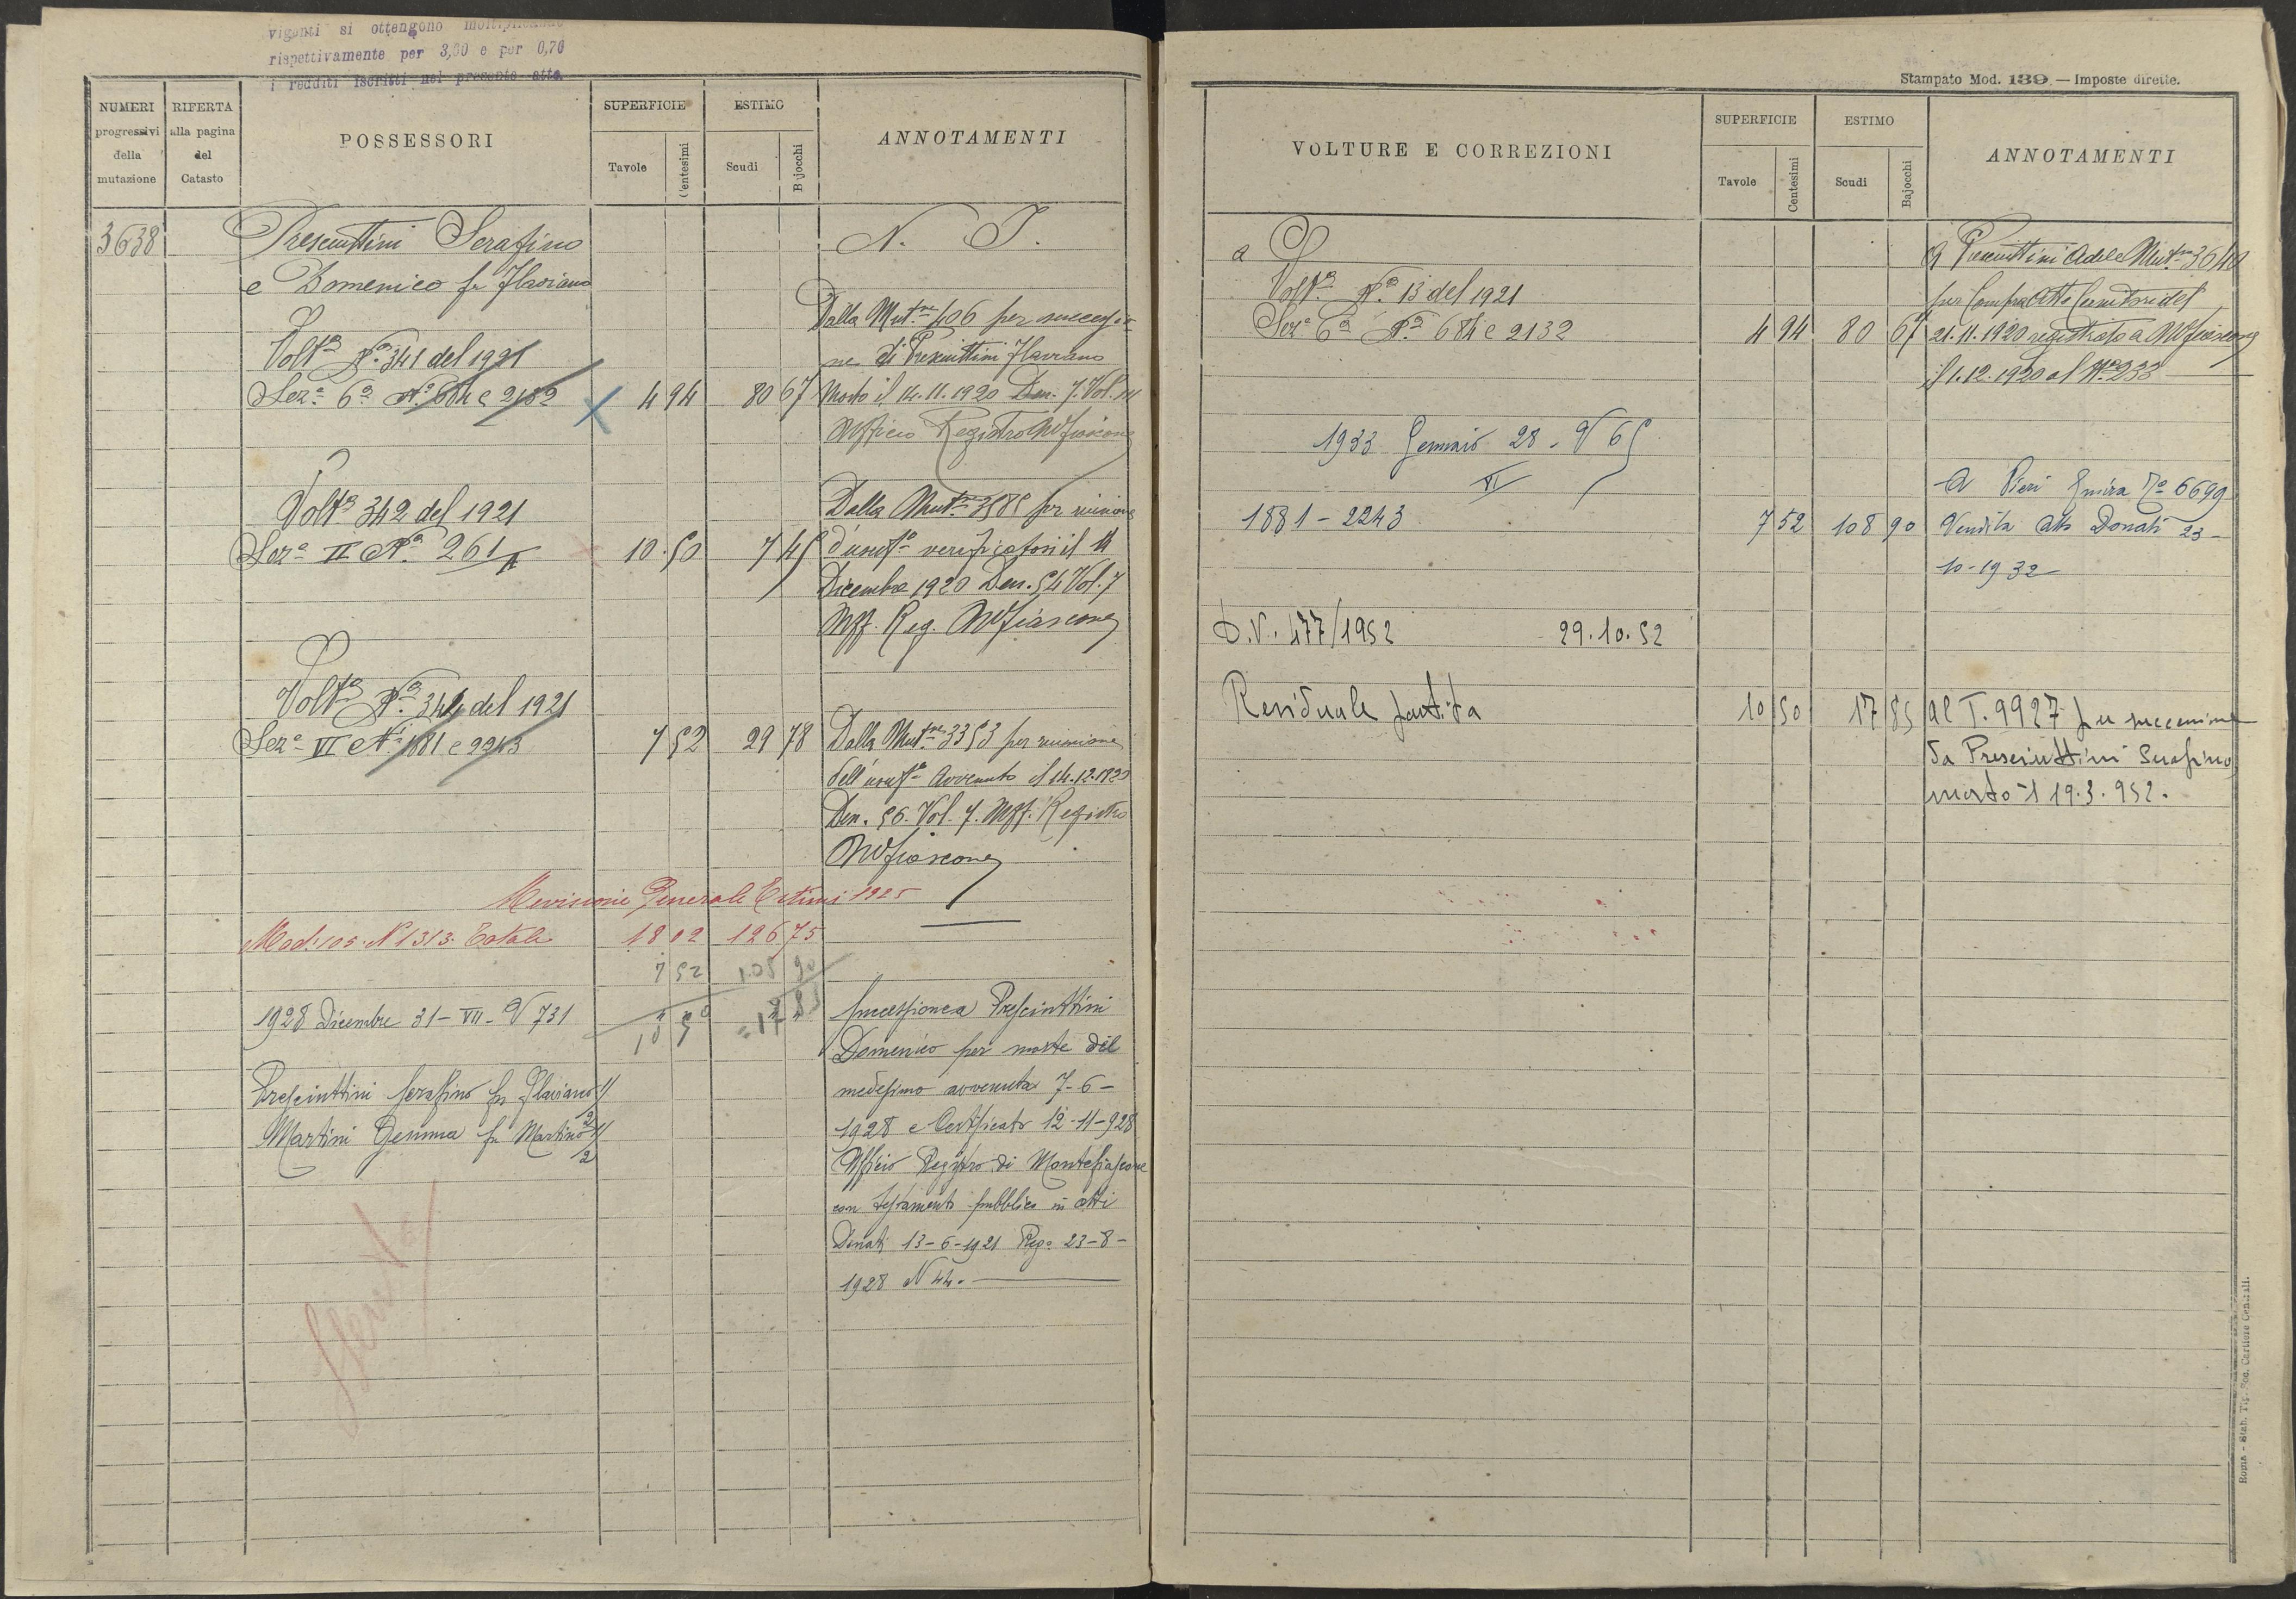 viganti si ottengono
rispettivamente per 3,60 e per 0,70
i redditi iscritti nel presente atto.
NUMERI progressivi della mutazione
RIFERTA alla pagina del Catasto
POSSESSORI
SUPERFICIE
Tavole
Centesimi
ESTIMO
Scudi
Bajocchi
ANNOTAMENTI
3638
Presciuttini Serafino
N. I.
e Domenico fu Flaviano
Dalla Mut.ne 406 per successio
Volt.a N.o 341 del 1921
ne di Presciuttini Flaviano
Sez.e 6a N.o 684 e 2132 4 94 80 67 Morto il 14.11.1920 Den. 7. Vol. 
Ufficio Registro M/fiascone
Volt.a 342 del 1921
Dalla Mut.ne 3585 per riunione
Sez.e II N.o 261 10.50 7 45 d'usuf.o verificatosi il 14
Dicembre 1920 Den. 54 Vol. 7
Uff. Reg. M/fiascone
Volt.a N.o 344 del 1921
Sez.e VI N.i 1881 e 2243 7 52 29 78 Dalla Mut.ne 3353 per riunione
dell'usuf.o avvenuto il 14.12.1920
Den. 56. Vol. 7. Uff. Registro
M/fiascone
Revisione Generale Estimi 1925
Mod. 105. N 1313. Totale 18 02 126 75
7 52 108 90
10 50 = 17 85
1928 Dicembre 31 - VII - V 731
Successione a Presciuttini
Domenico per morte del
Presciuttini Serafino fu Flaviano 1/2
medesimo avvenuta 7-6-
Martini Gemma fu Martino 1/2
1928 e Certificato 12-11-928
Ufficio Registro di Montefiascone
con testamento pubblico in atti
Donati 13-6-1921 Reg.o 23-8-
1928 N 44.
Stampato Mod. 139 — Imposte dirette.
VOLTURE E CORREZIONI
SUPERFICIE
Tavole
Centesimi
ESTIMO
Scudi
Bajocchi
ANNOTAMENTI
a
A Presciuttini Adele Mut.ne 3640
Volt.a N.o 13 del 1921
per Compra Atto del
Sez.e 6a N.o 684 e 2132 4 94 80 67 21.11.1920 registrato a M/fiascone
il 1.12.1920 al N.o 233
1933 Gennaio 28 - V 65
XI
A Pieri N.o 6699
1881 - 2243 7 52 108 90 Vendita Atto Donati 23-
10-1932
D.V. 477/1952 29.10.52
Residuale partita 10 50 17 85 Al T. 9927 per successione
da Presciuttini Serafino
morto il 19.3.952.
Roma - Stab. Tip. Soc. Cartiere Centrali.